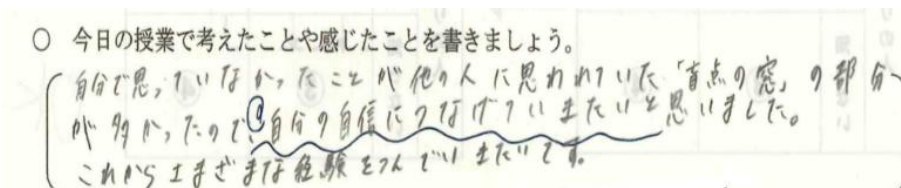 ○ 今日の授業で考えたことや感じたことを書きましょう。
自分で思っていなかったことが他の人に思われていた「盲点の窓」の部分
が多かったので、@自分の自信につなげていきたいと思いました。
これからさまざまな経験をつんでいきたいです。